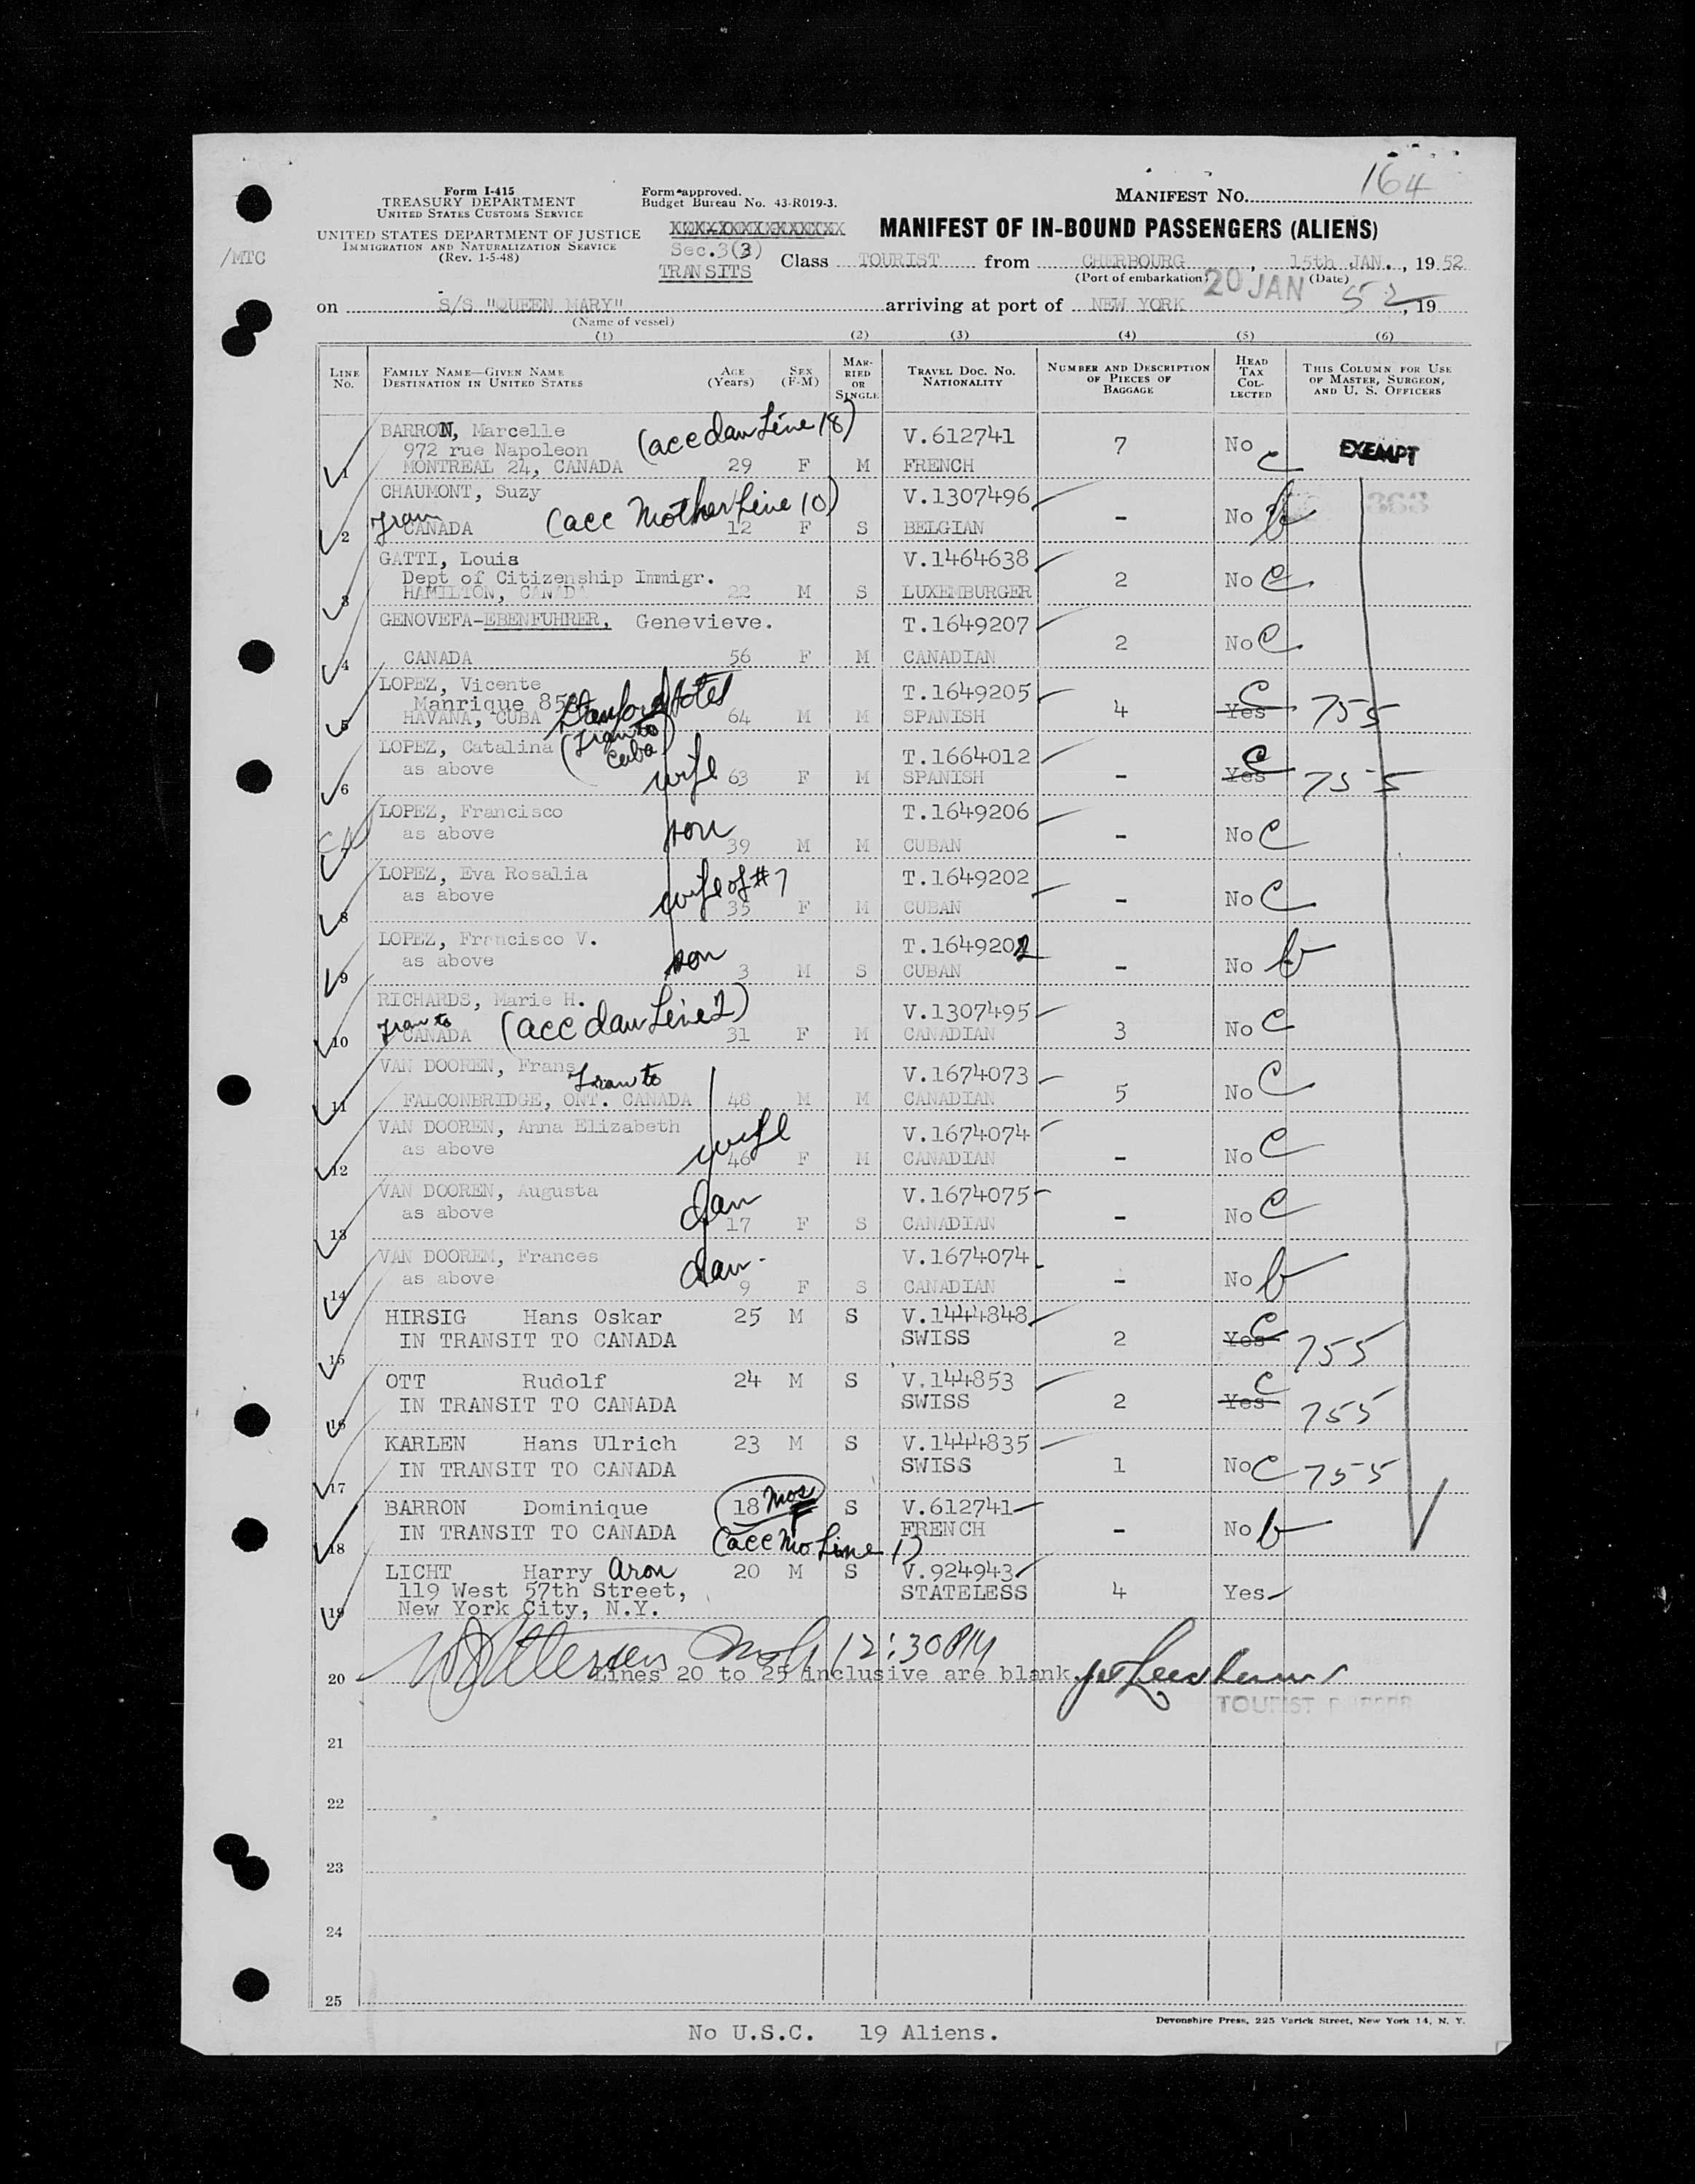 164
Form I-415
TREASURY DEPARTMENT
UNITED STATES CUSTOMS SERVICE
UNITED STATES DEPARTMENT OF JUSTICE
IMMIGRATION AND NATURALIZATION SERVICE
(Rev. 1-5-48)
/MTC
Form approved.
Budget Bureau No. 43-R019-3.
Sec.3(3)
TRANSITS
MANIFEST NO.
MANIFEST OF IN-BOUND PASSENGERS (ALIENS)
Class TOURIST from CHERBOURG, 15th JAN., 19 52
(Port of embarkation) (Date)
20 JAN 52
on S/S "QUEEN MARY" arriving at port of NEW YORK, 19
(Name of vessel)
(1) (2) (3) (4) (5) (6)
LINE NO. FAMILY NAME—GIVEN NAME DESTINATION IN UNITED STATES AGE (Years) SEX (F-M) MARRIED OR SINGLE TRAVEL DOC. NO. NATIONALITY NUMBER AND DESCRIPTION OF PIECES OF BAGGAGE HEAD TAX COLLECTED THIS COLUMN FOR USE OF MASTER, SURGEON, AND U. S. OFFICERS
BARRON, Marcelle (acc dau Line 18) V.612741
972 rue Napoleon 7 No C EXEMPT
1 MONTREAL 24, CANADA 29 F M FRENCH
CHAUMONT, Suzy (acc Mother Line 10) V.1307496
2 Tran CANADA 12 F S BELGIAN - No b
GATTI, Louis V.1464638
Dept of Citizenship Immigr. 2 No C
3 HAMILTON, CANADA 22 M S LUXEMBURGER
GENOVEFA-EBENFUHRER, Genevieve. T.1649207
2 No C
4 CANADA 56 F M CANADIAN
LOPEZ, Vicente T.1649205
Manrique Stanford Hotel 4 Yes C 755
5 HAVANA, CUBA 64 M M SPANISH
LOPEZ, Catalina (Tran to Cuba) T.1664012
6 as above wife 63 F M SPANISH - Yes C 755
LOPEZ, Francisco T.1649206
7 as above son 39 M M CUBAN - No C
LOPEZ, Eva Rosalia T.1649202
8 as above wife of #7 35 F M CUBAN - No C
LOPEZ, Francisco V. T.1649202
9 as above son 3 M S CUBAN - No b
RICHARDS, Marie H. V.1307495
10 Tran to CANADA (acc dau Line 2) 31 F M CANADIAN 3 No C
VAN DOOREN, Frans Tran to V.1674073
11 FALCONBRIDGE, ONT. CANADA 48 M M CANADIAN 5 No C
VAN DOOREN, Anna Elizabeth V.1674074
12 as above wife 46 F M CANADIAN - No C
VAN DOOREN, Augusta V.1674075
13 as above dau 17 F S CANADIAN - No C
VAN DOOREN, Frances V.1674074
14 as above dau. 9 F S CANADIAN - No b
HIRSIG Hans Oskar 25 M S V.1444848
15 IN TRANSIT TO CANADA SWISS 2 Yes C 755
OTT Rudolf 24 M S V.144853
16 IN TRANSIT TO CANADA SWISS 2 Yes C 755
KARLEN Hans Ulrich 23 M S V.1444835
17 IN TRANSIT TO CANADA SWISS 1 No C 755
BARRON Dominique 18 mos F S V.612741
18 IN TRANSIT TO CANADA (acc Mo Line 1) FRENCH - No b
LICHT Harry Aron 20 M S V.924943
119 West 57th Street, STATELESS 4 Yes
19 New York City, N.Y.
12:30 PM
20 Lines 20 to 25 inclusive are blank
TOURIST
21
22
23
24
25
Devonshire Press, 225 Varick Street, New York 14, N. Y.
No U.S.C. 19 Aliens.